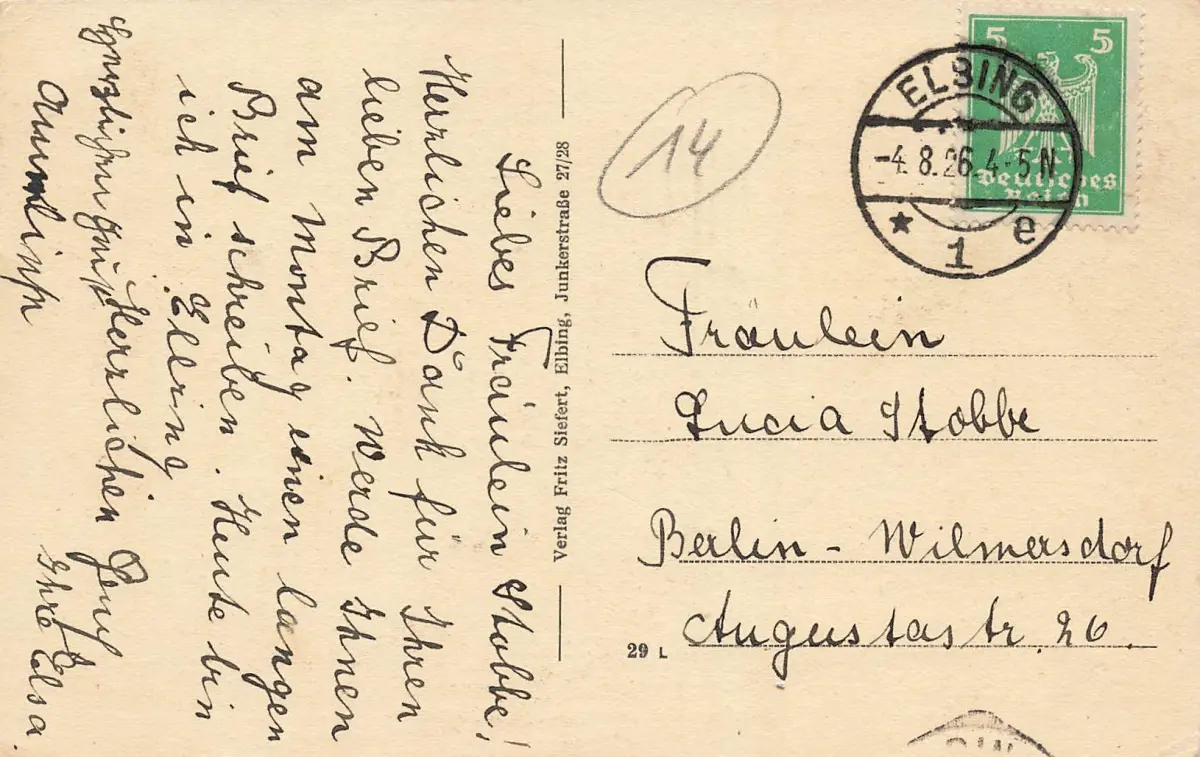 Liebes Fräulein Stobbe!
Herzlichen Dank für Ihren
lieben Brief. Werde Ihnen
am Montag einen langen
Brief schreiben. Heute bin
ich in Elbing
Herzlichen Gruß
Ihre Elsa.
Verlag Fritz Siefert, Elbing, Junkerstraße 27/28
14
5 5
Deutsches
Reich
ELBING
-4.8.26.4-5N
* 1 e
Fräulein
Lucia Stobbe
Berlin - Wilmersdorf
Augustastr. 26.
29 L